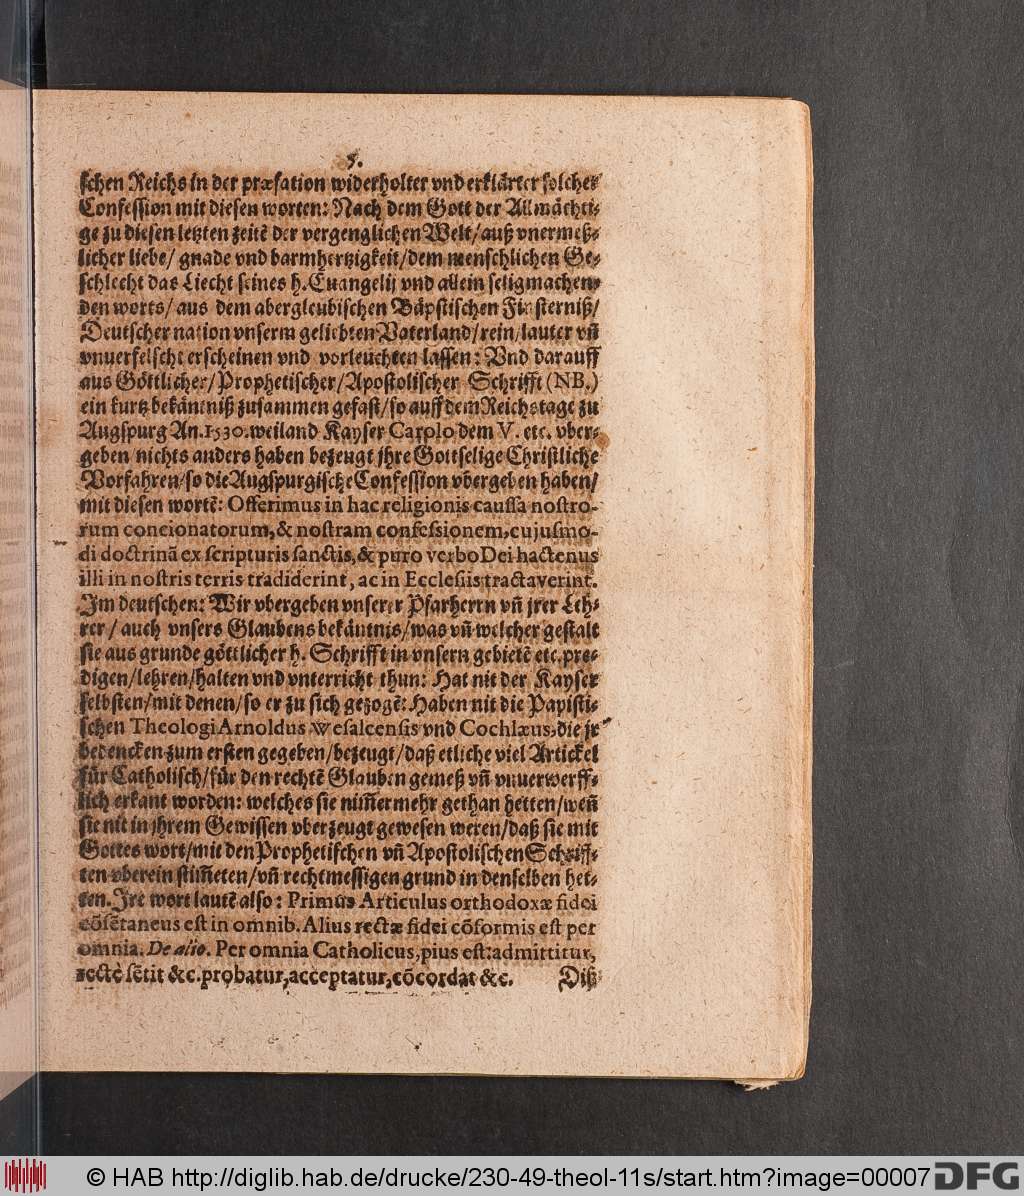 5.
schen Reichs in der præfation widerholter vnd erklärter solcher
Confession mit diesen worten: Nach dem Gott der Allmächti-
ge zu diesen letzten zeitẽ der vergenglichen Welt/ auß vnermeß-
licher liebe/ gnade vnd barmhertzigkeit/ dem menschlichen Ge-
schlecht das Liecht seines h. Euangelij vnd allein seligmachen-
den worts/ aus dem abergleubischen Bäpstischen Finsterniß/
Deutscher nation vnserm geliebten Vaterland/ rein/ lauter vñ
vnuerfelscht erscheinen vnd vorleuchten lassen: Vnd darauff
aus Göttlicher/ Prophetischer/ Apostolischer Schrifft (NB.)
ein kurtz bekäntniß zusammen gefast/ so auff dem Reichstage zu
Augspurg An. 1530. weiland Kayser Carolo dem V. etc. vber-
geben/ nichts anders haben bezeugt jhre Gottselige Christliche
Vorfahren/ so die Augspurgische Confession vbergeben haben/
mit diesen wortẽ: Offerimus in hac religionis caussa nostro-
rum concionatorum, & nostram confessionem, cujusmo-
di doctrinã ex scripturis sanctis, & puro verbo Dei hactenus
illi in nostris terris tradiderint, ac in Ecclesiis tractaverint.
Im deutschen: Wir vbergeben vnserer Pfarherrn vñ jrer Leh-
rer/ auch vnsers Glaubens bekäntnis/ was vñ welcher gestalt
sie aus grunde göttlicher h. Schrifft in vnsern gebietẽ etc. pre-
digen/ lehren/ halten vnd vnterricht thun: Hat nit der Kayser
selbsten/ mit denen/ so er zu sich gezogẽ: Haben nit die Papisti-
schen Theologi Arnoldus Wesalcensis vnd Cochlæus, die jr
bedencken zum ersten gegeben/ bezeugt/ daß etliche viel Artickel
für Catholisch/ für den rechtẽ Glauben gemeß vñ vnuerwerff-
lich erkant worden: welches sie nim̃ermehr gethan hetten/ weñ
sie nit in jhrem Gewissen vberzeugt gewesen weren/ daß sie mit
Gottes wort/ mit den Prophetischen vñ Apostolischen Schriff-
ten vberein stim̃eten/ vñ rechtmessigen grund in denselben het-
ten. Ire wort lautẽ also: Primus Articulus orthodoxæ fidei
cõsẽtaneus est in omnib. Alius rectæ fidei cõformis est per
omnia. De alio. Per omnia Catholicus, pius est: admittitur,
rectè sẽtit &c. probatur, acceptatur, cõcordat &c. Diß
© HAB http://diglib.hab.de/drucke/230-49-theol-11s/start.htm?image=00007 DFG